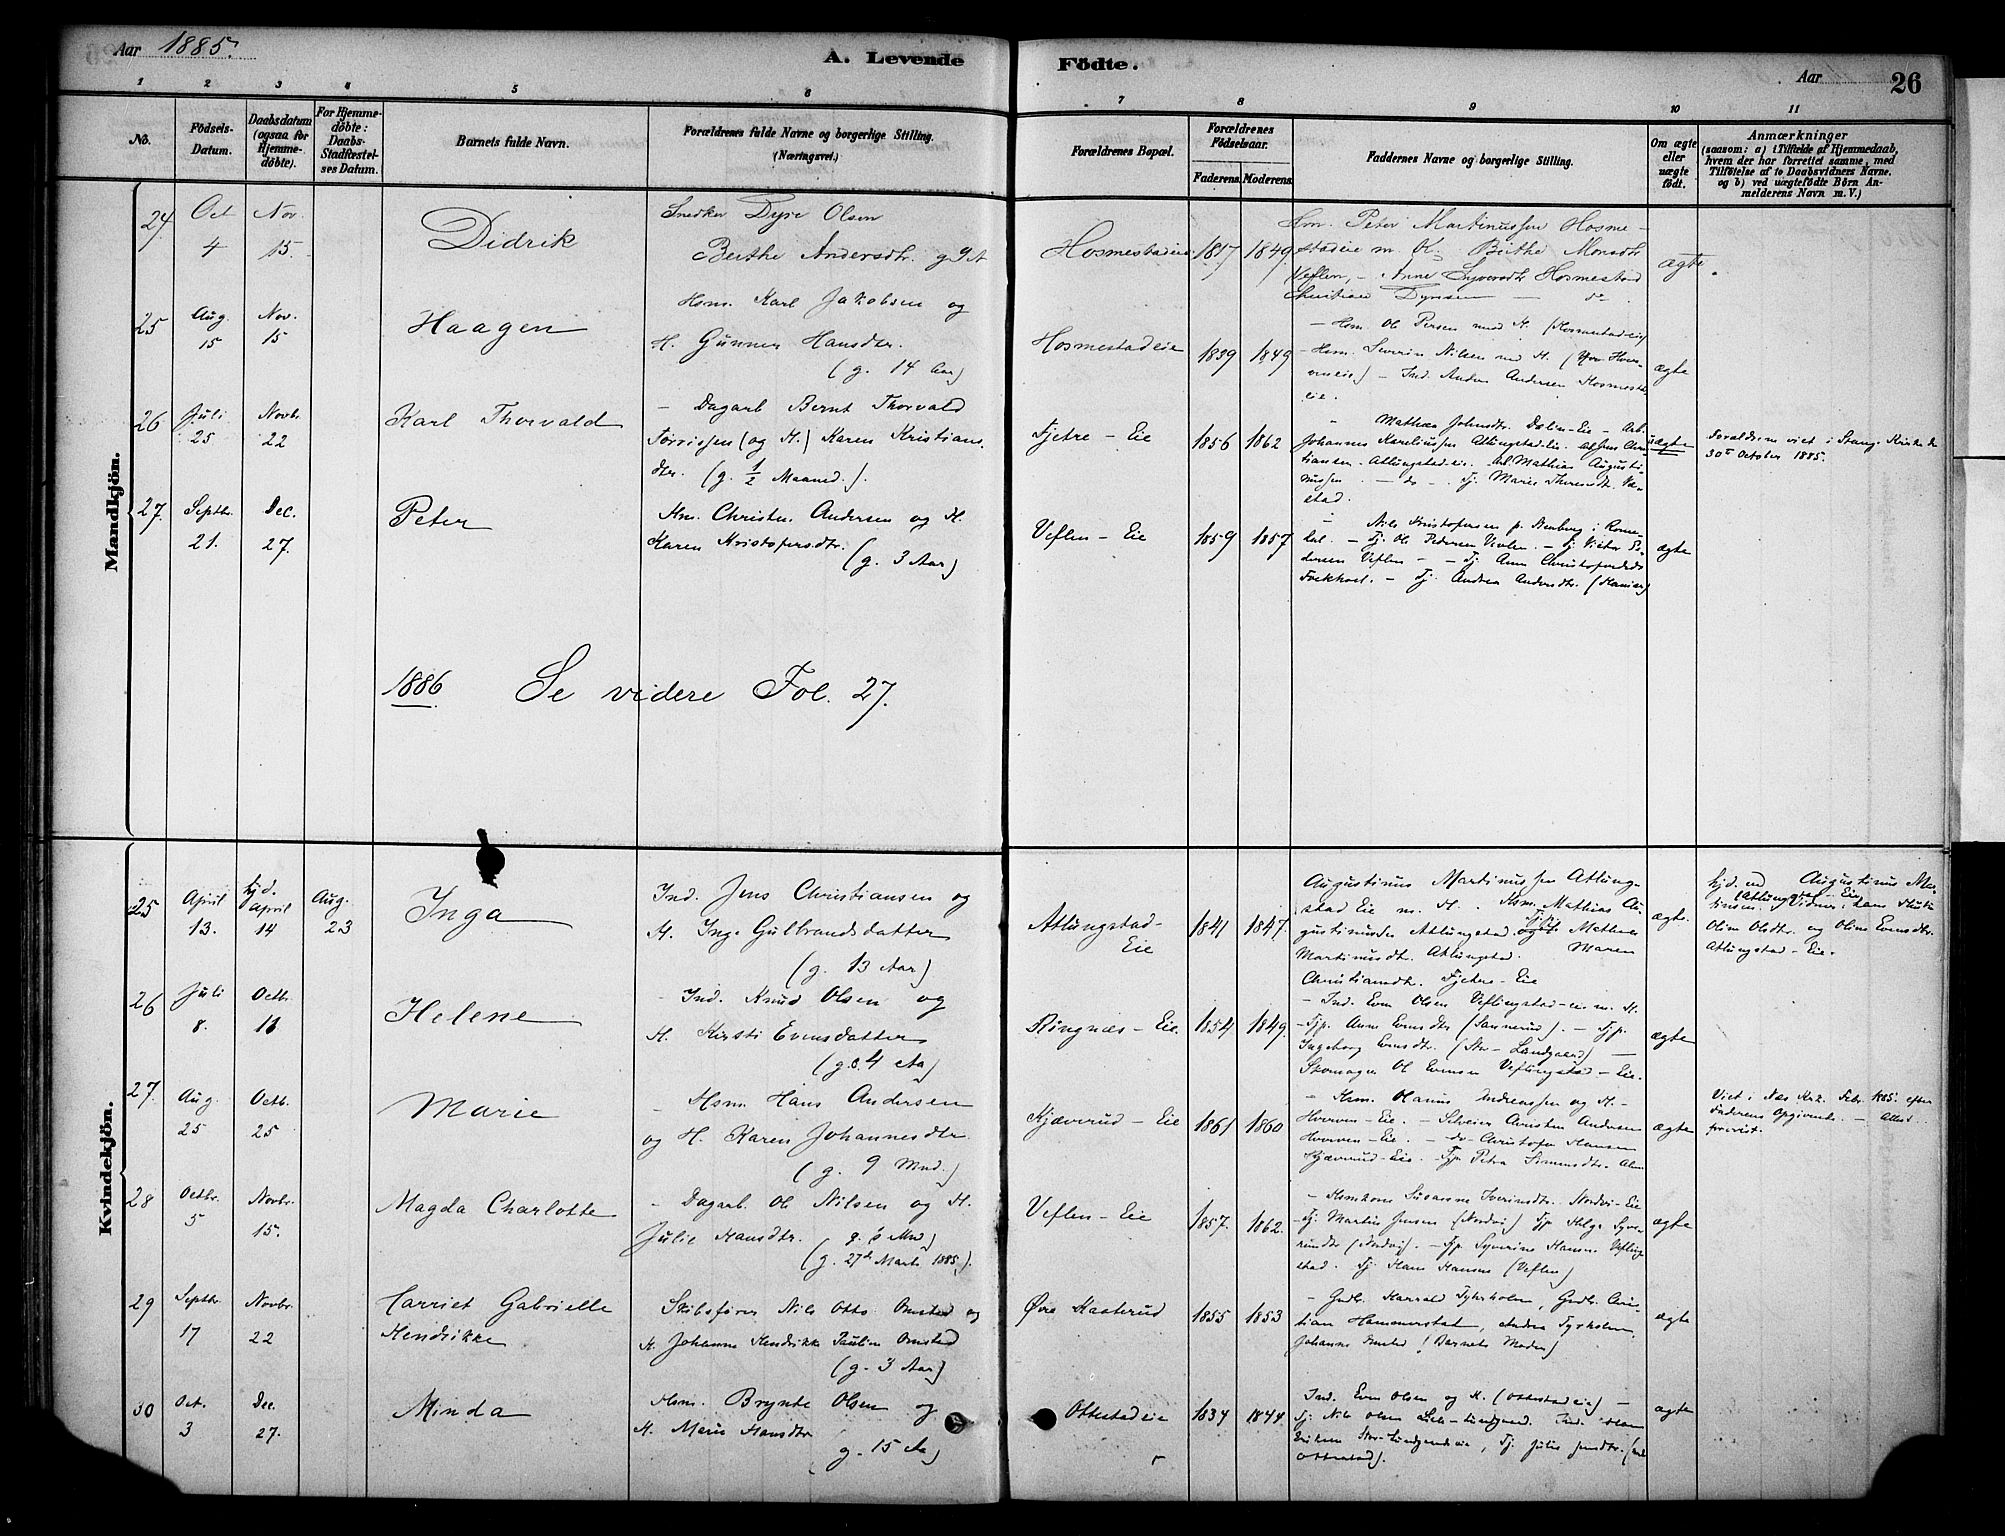 Aar 1885.
A. Levende Födte.
Aar
26
1 2 3 4 5 6 7 8 9 10 11
No.
Födsels-Datum.
Daabsdatum (ogsaa for Hjemme-döbte).
For Hjemme-döbte: Daabs-Stadfæstel-ses Datum.
Barnets fulde Navn.
Forældrenes fulde Navne og borgerlige Stilling. (Næringsvei.)
Forældrenes Bopæl.
Forældrenes Födselsaar.
Faderens. Moderens.
Faddernes Navne og borgerlige Stilling.
Om ægte eller uægte født.
Anmærkninger
(saasom: a) i Tilfælde af Hjemmedaab, hvem der har forrettet samme, med Tilföielse af to Daabsvidners Navne. og b) ved uægtefödte Börn An-melderens Navn m. V.)
Mandkjön.
24 Oct 4 Nov. 15.
Didrik
Snedker Dyre Olsen
Berthe Andersdtr. g 9 A
Hosmestadeie 1857 1849
Peter Martinussen Hosme-
stadeie m K. Birthe Monsdtr
Veflen, - Anne Syversdtr Hosmestad
Christian Dyresen - do.
ægte
25 Aug. 15 Nov. 15
Haagen
Hsm. Karl Jakobsen og
H. Gunner Hansdtr.
(g. 14 Aar)
Hosmestadeie 1839 1849
- Hsm Ole Persen med H. (Hosmestadeie)
- Hsm. Severin Nilsen med H.
- Ind. Anders Andersen Hosmestad
eie.
ægte
26 Juli 25 Novbr. 22
Karl Thorvald
- Dagarb Bernt Thorvald
(og H.) Karen Kristians
dtr. (g. 1/2 Maaned.).
Tjetre - Eie 1856 1862
- Mathea Johnsdtr. Dolin-Eie - Arb.
Johannes Atlungstad-Eie.
tiansen. Atlungstad-eie. Arb. Mathias Augusti-
nussen - do - . Tj. Marie
stad.
uægte
Forældrene viet i Stange Kirke den
30te October 1885.
27. Septbr. 21. Dec. 27.
Peter
Hsm. Christen Andersen og H.
Karen Kristofersdtr.
(g. 3 Aar)
Veflen - Eie 1859 1857
- Nils Kristofersen p. i Rome-
dal. - Tj. Ole Pedersen Veflen. - Tj Victor Pe-
dersen Veflen - Tj. Anne Christofersdtr
- Tj. Andrea Andersdtr.
ægte
1886 Se videre Fol. 27.
Kvindekjön.
25 April 13. hjd. April 14 Aug. 23
Inga
Ind. Jens Christiansen og
H. Inge Gulbrandsdatter
(g. 13 Aar)
Atlungstad-
Eie
1841 1847.
Augustinus Martinussen Atlung-
stad Eie m. H. Hsm. Mathias Au-
gustinussen Atlungstad og Mathea
Martinusdtr. Atlungstad. Maren
Christiansdtr. Tjetre-Eie
ægte.
hjd. ved Augustinus Mar-
tinsen (Atlungstad-Eie). Vidner:
Oline Olsdtr. og Oline Evensdtr.
Atlungstad-Eie.
26 Juli 8. Octbr. 11
Helene
- Ind. Knud Olsen og
H. Kirsti Evensdatter
(g. c. 4 Aar)
Ringnæs-Eie. 1854 1849.
- Ind. Even Olsen Veflingstad-eie m. H.
- Tjp. Anne Evensdtr (Sannerud). - Tjp.
Ingeborg Evensdtr. (Stor-Lundgaard) -
Skomager Ole Evensen Veflingstad-Eie.
ægte
27. Aug. 25 Octb. 25
Marie
- Hsm. Hans Andersen
og H. Karen Johannesdtr.
(g. 9 Mnd.)
Kjæverud-Eie 1861 1860
- Hsm. Olaus Andreassen og H. -
Hverven-Eie. - Selveier Christen Andersen
Hverven-Eie. - do Christofer Hansen
Kjæverud-Eie. - Tjp Petra Simensdtr.
ægte
Viet i Næs Kirk. Febr. 1885 efter
Faderens Opgivende. - Attest
forevist.
28 Octbr. 5 Novbr. 15.
Magda Charlotte
- Dagarb. Ole Nilsen og H.
Julie Hansdtr. g. 8 Mnd)
(g. 27de Marts 1885).
Veflen-Eie 1857. 1862.
- Hsmkone Susanne Iverinsdtr. Nordvi-Eie
- Tj. Martin Jensen (Nordvi) Tjp Helge Syve-
rindtr (Nordvi). - Tjp. Syverine Hansen Vefling-
stad. Tj Hans Hansen (Veflen)
ægte
29 Septbr. 17 Novbr. 22
Harriet Gabrielle
Hendrikke
Skibsfører Nils Otto Omsted og
H. Johanne Hendrikke Pauline Omsted
(g. 3 Aar)
Øvre Kaaterud 1855 1853
- Gdb. Harrald Tyrholm, Gdb. Cris-
tian Hammerstad, Andrea Tyrholm,
Johanne Omsted (Barnets Moder)
ægte
30 Oct. 3 Dec. 27.
Minda
Hsm. Brynte Olsen og
H. Marie Hansdtr.
g. 15 Aar)
Ottestadeie 1834 1844.
Ind. Even Olsen og H. (Ottestadeie) -
Tj. Nils Olsen Lille-Lundgaard. Ind. Olaus
Eriksen Stor-Lundgaardeie, Tj. Julie Jensdtr.
Ottestad).
ægte